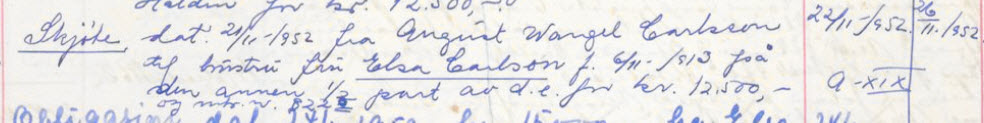 Halden for kr. 12.500,-
Skjøte, dat. 21/11-1952 fra August Wangel Carlsson 22/11-1952. 26/11-1952
til hustru fru Elsa Carlson f. 6/11-1913 på
den annen 1/2 part av d.e. for kr. 12.500,- a-XIX
og mtr. nr.
Obligasjon, dat. 1952